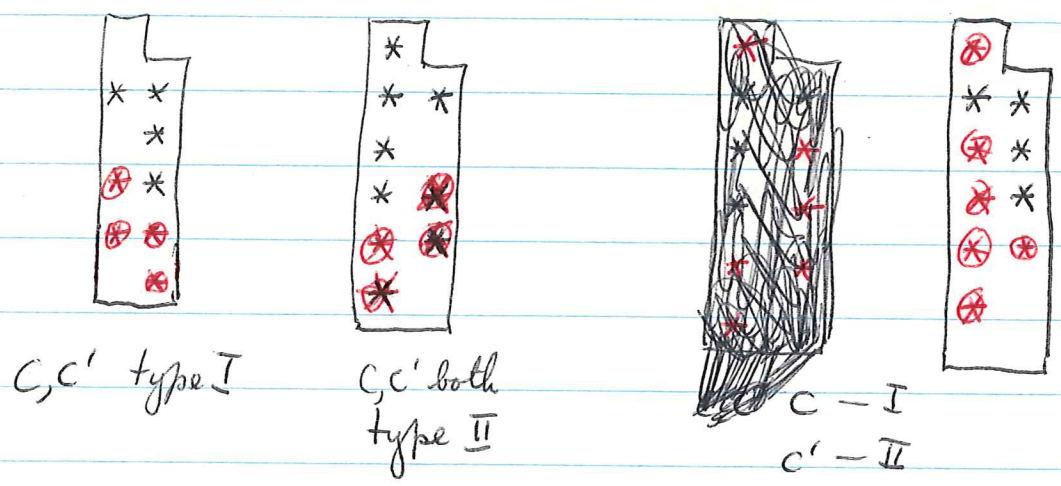 C, C' type I
C, C' both
type II
C – I
C' – II